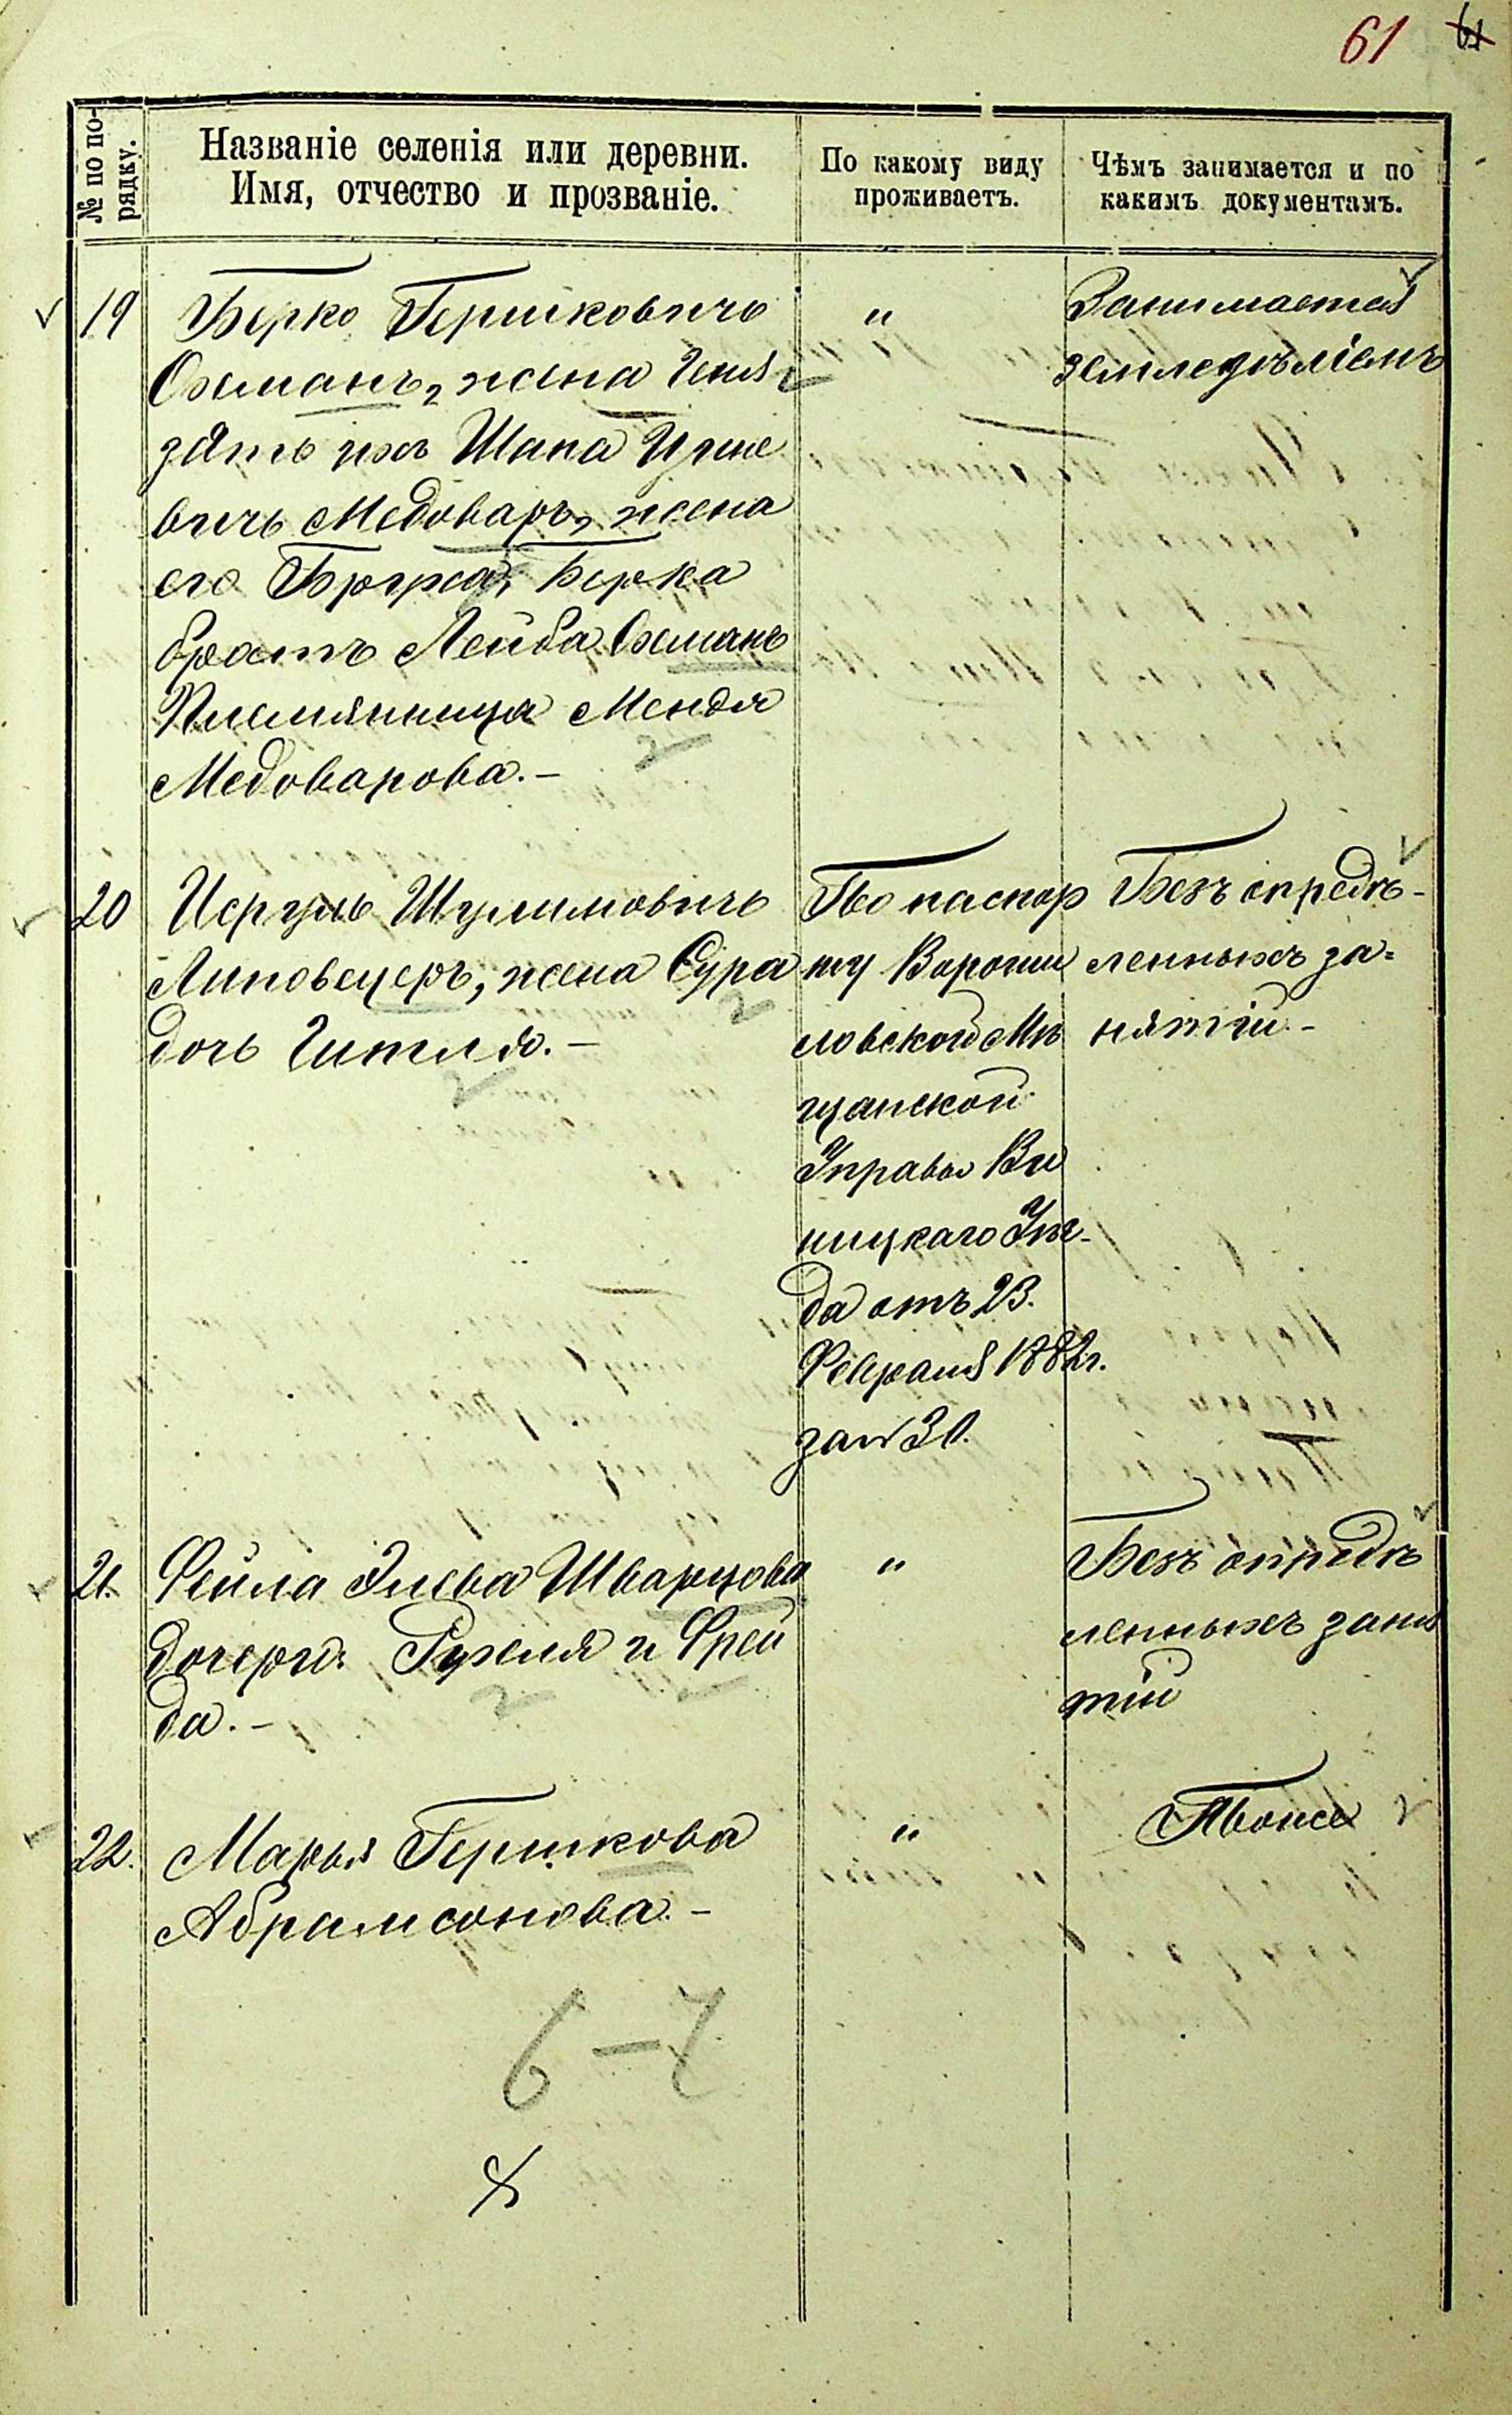 61 61
№ по по-
рядку.
Названіе селенія или деревни.
Имя, отчество и прозваніе.
По какому виду
проживаетъ.
Чѣмъ занимается и по
какимъ документамъ.
19 Берко Гершковичъ
Охманъ, жена Геня
зять ихъ Шапа
вичъ Медоваръ, жена
его Берка
братъ Лейба Охманъ
Племянница Мендля
Медоварова. –
"
Занимается
земледѣліемъ
20 Исруль Шулимовичъ
Липовецеръ, жена Сура
дочь Гитля. –
По паспор
ту Вороши
ловской Мѣ
щанской
Управы Ви
ницкаго Уѣз
да отъ 23.
Февраля 1882 г.
за № 30.
Безъ опредѣ-
ленныхъ за-
нятій –
21. Фейла Элева Шварцова
дочери: Рухля и Фрей
да. –
"
Безъ опредѣ
ленныхъ заня
тій
22. Марья Гершкова
Абрамсонова. –
"
Тоже
6 – 7